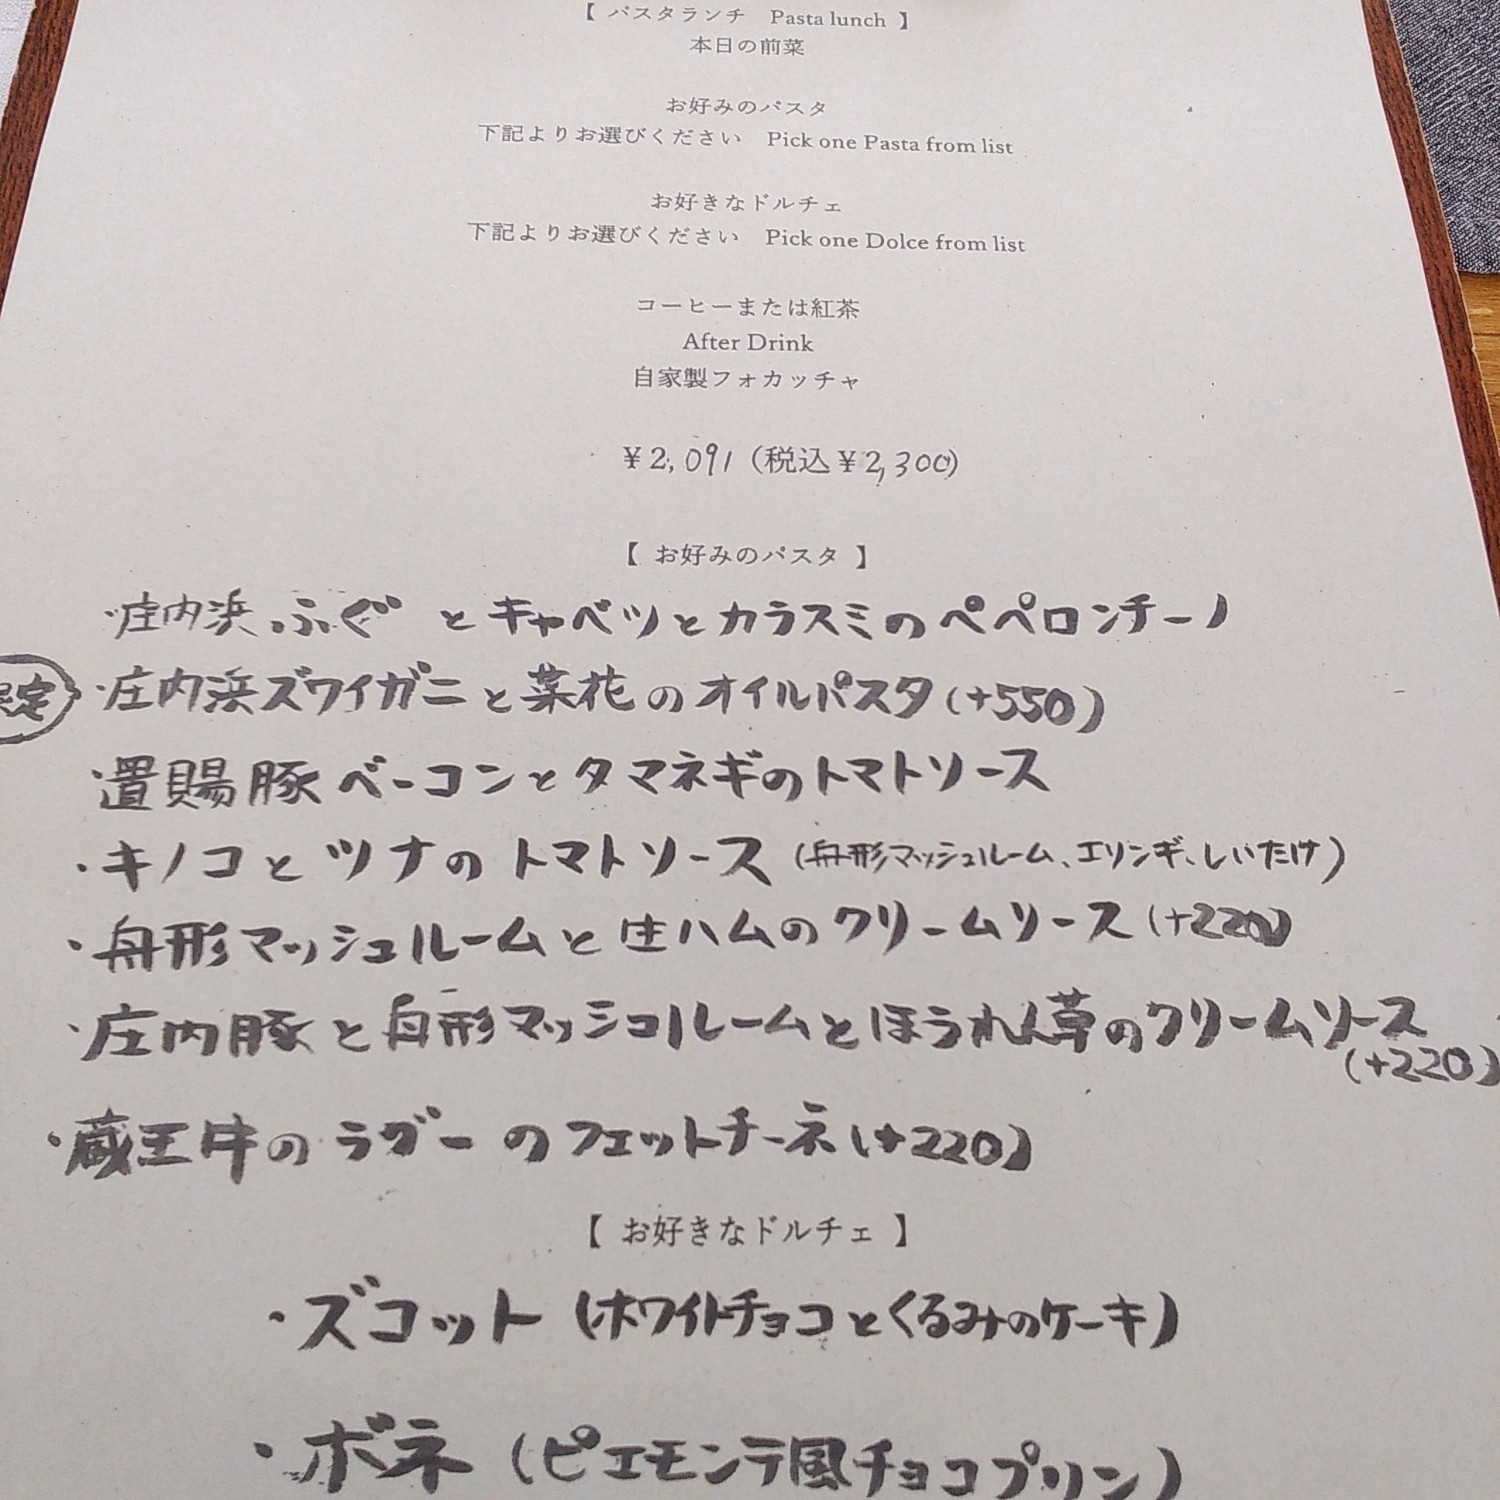 【 パスタランチ　Pasta lunch 】
本日の前菜
お好みのパスタ
下記よりお選びください　Pick one Pasta from list
お好きなドルチェ
下記よりお選びください　Pick one Dolce from list
コーヒーまたは紅茶
After Drink
自家製フォカッチャ
¥2,091（税込¥2,300）
【 お好みのパスタ 】
・庄内浜ふぐとキャベツとカラスミのペペロンチーノ
限定 ・庄内浜ズワイガニと菜花のオイルパスタ(+550)
・置賜豚ベーコンとタマネギのトマトソース
・キノコとツナのトマトソース(舟形マッシュルーム、エリンギ、しいたけ)
・舟形マッシュルームと生ハムのクリームソース(+220)
・庄内豚と舟形マッシュルームとほうれん草のクリームソース
(+220)
・蔵王牛のラグーのフェットチーネ(+220)
【 お好きなドルチェ 】
・ズコット(ホワイトチョコとくるみのケーキ)
・ボネ(ピエモンテ風チョコプリン)